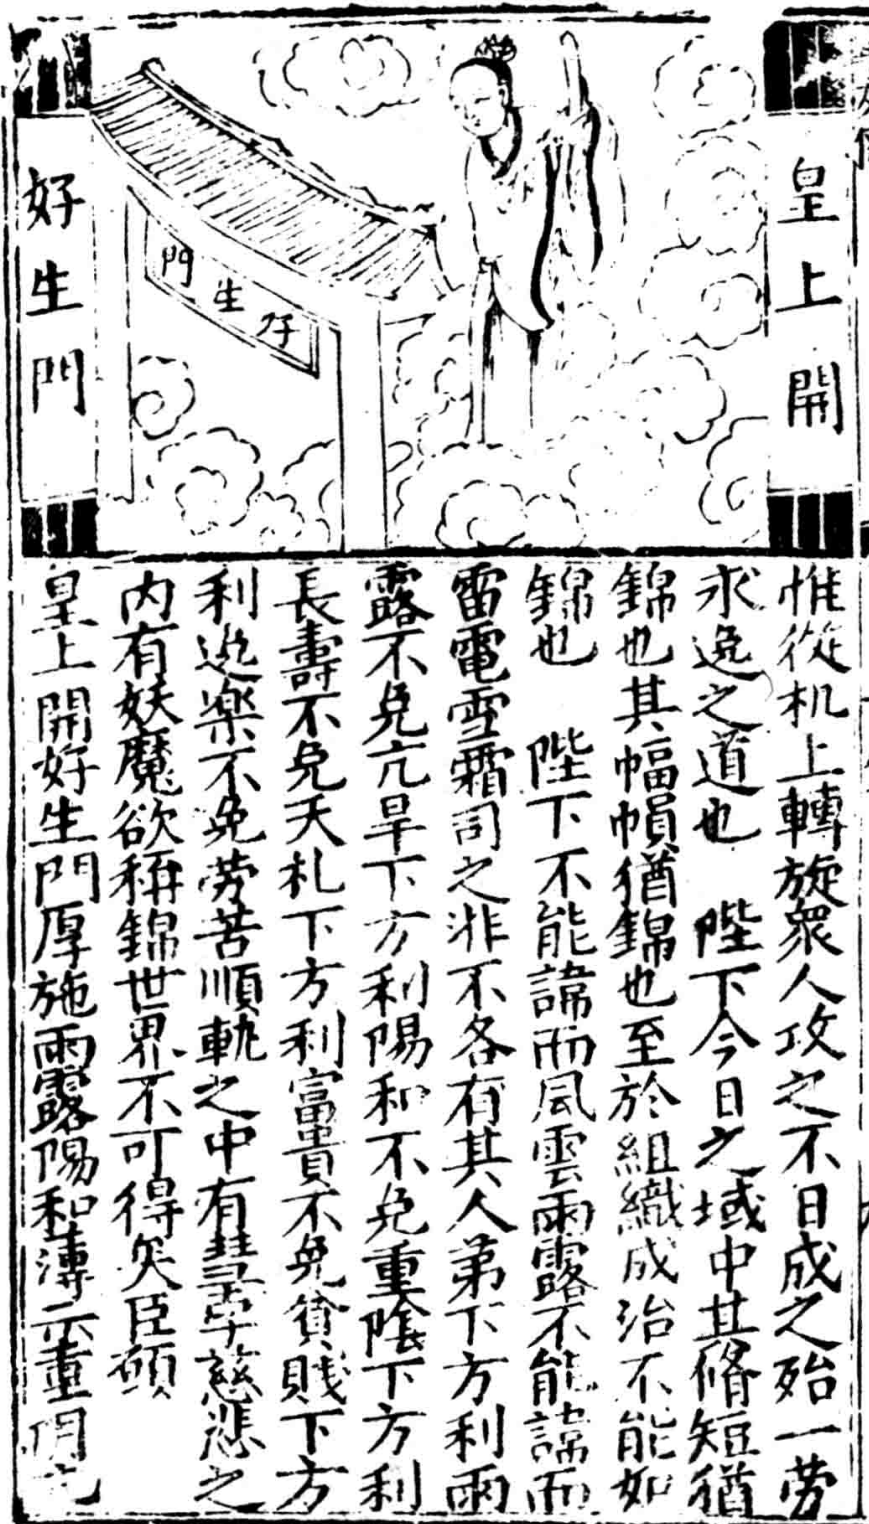 皇上開
好生門
好生門
惟從机上轉旋眾人攻之不日成之殆一劳
求逸之道也　陛下今日之域中其脩短猶
錦也其幅幀猶錦也至於組織成治不能如
錦也　陛下不能諱而風雲雨露不能諱而
雷電雪霜司之非不各有其人第下方利雨
露不免亢旱下方利陽和不免重陰下方利
長壽不免夭札下方利富貴不免貧賤下方
利逸楽不免劳苦順軌之中有彗孛慈悲之
内有妖魔欲称錦世界不可得矣臣願
皇上開好生門厚施雨露陽和薄示重